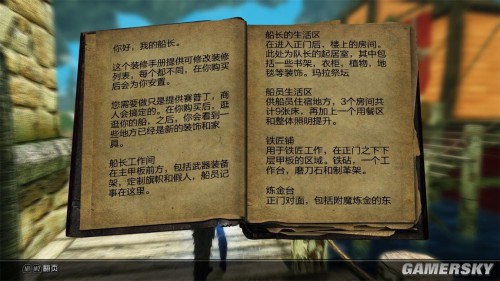 你好，我的船长。
这个装修手册提供可修改装修
列表，每个都不同，在你购买
后会为你安置。
您需要做只是提供赛普丁，商
人会搞定的，在你购买后，逛
逛你的船，之后，你会看到一
些地方已经是新的装饰和家
具。
船长工作间
在主甲板前方，包括武器装备
架，定制旗帜和假人，船员记
事在这里。
船长的生活区
在进入正门后，楼上的房间。
此处为队长的起居室，其中包
括一些书架，衣柜，植物，地
毯等装饰。玛拉祭坛
船员生活区
供船员住宿地方，3个房间共
计9张床，再加上一个用餐区
和整体照明提升。
铁匠铺
用于铁匠工作，在正门之下下
层甲板的区域。铁砧，一个工
作台，磨刀石和制革架。
炼金台
正门对面，包括附魔炼金的东
翻页
GAMERSKY